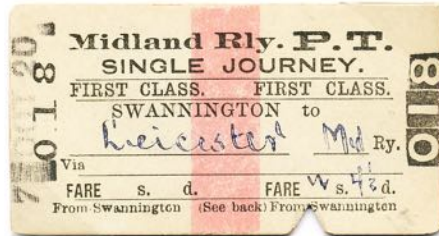 Midland Rly. P.T.
SINGLE JOURNEY.
FIRST CLASS. FIRST CLASS.
SWANNINGTON to
Leicester Mid Ry.
Via
FARE s. d. FARE s. d.
From Swannington (See back) From Swannington
018
018